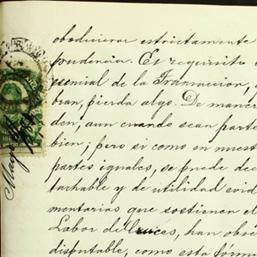 obedecieron estrictamente
pondencia. Es requisito
esencial de la Transaccion,
bran, pierda algo. De maner
den, aun cuando sean parte
bien; pero si como en nuest
partes iguales, se puede dec
tachable y de utilidad evid
mentarias que sostienen el
Labor de, han obs
disputable, como esta fórmu